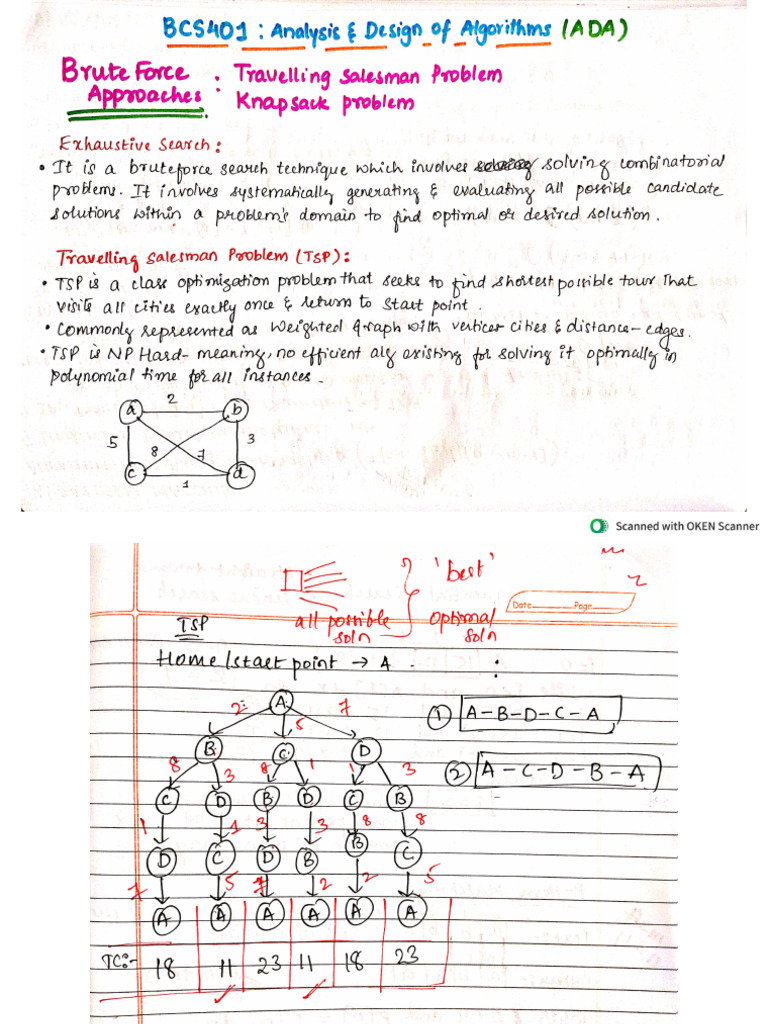 BCS401 : Analysis & Design of Algorithms (ADA)
Brute Force Approaches : Travelling Salesman Problem
Knapsack problem
Exhaustive Search :
• It is a bruteforce search technique which involves solving combinatorial
problems. It involves systematically generating & evaluating all possible candidate
solutions within a problem's domain to find optimal or desired solution.
Travelling Salesman Problem (TSP) :
• TSP is a class optimization problem that seeks to find shortest possible tour that
visits all cities exactly once & return to start point.
• Commonly represented as weighted graph with vertices cities & distance - edges.
• TSP is NP Hard - meaning, no efficient alg existing for solving it optimally in
polynomial time for all instances.
a 2 b
5 8 7 3
c 1 d
Scanned with OKEN Scanner
'best'
Date Page
all possible soln
optimal soln
TSP
Home/start point → A .
A
2 5 7
B C D
8 3 8 1 1 3
C D B D C B
1 1 3 3 8 8
D C D B B C
7 5 7 2 2 5
A A A A A A
TC:- 18 11 23 11 18 23
① A-B-D-C-A
② A-C-D-B-A